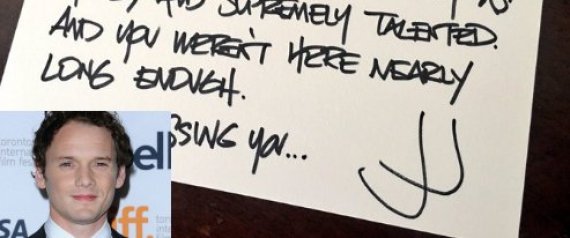 AND SUPREMELY TALENTED.
AND YOU WEREN'T HERE NEARLY
LONG ENOUGH.
SSING YOU...
JJ
toronto
international
film festival
ell
VISA
tiff.